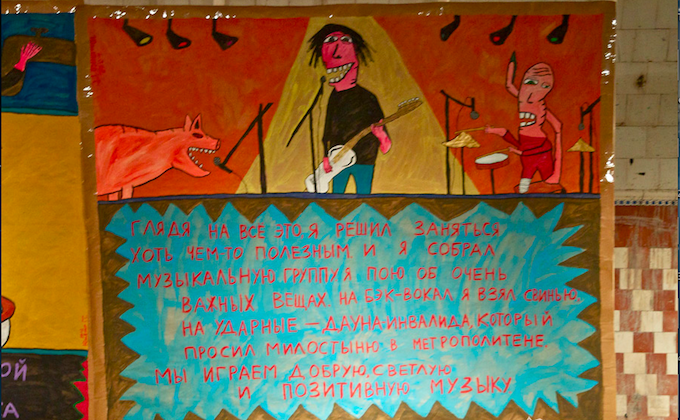 ГЛЯДЯ НА ВСЕ ЭТО, Я РЕШИЛ ЗАНЯТЬСЯ
ХОТЬ ЧЕМ-ТО ПОЛЕЗНЫМ. И Я СОБРАЛ
МУЗЫКАЛЬНУЮ ГРУППУ. Я ПОЮ ОБ ОЧЕНЬ
ВАЖНЫХ ВЕЩАХ. НА БЭК-ВОКАЛ Я ВЗЯЛ СВИНЬЮ,
НА УДАРНЫЕ – ДАУНА-ИНВАЛИДА, КОТОРЫЙ
ПРОСИЛ МИЛОСТЫНЮ В МЕТРОПОЛИТЕНЕ.
МЫ ИГРАЕМ ДОБРУЮ, СВЕТЛУЮ
И ПОЗИТИВНУЮ МУЗЫКУ
ОЙ
ТА